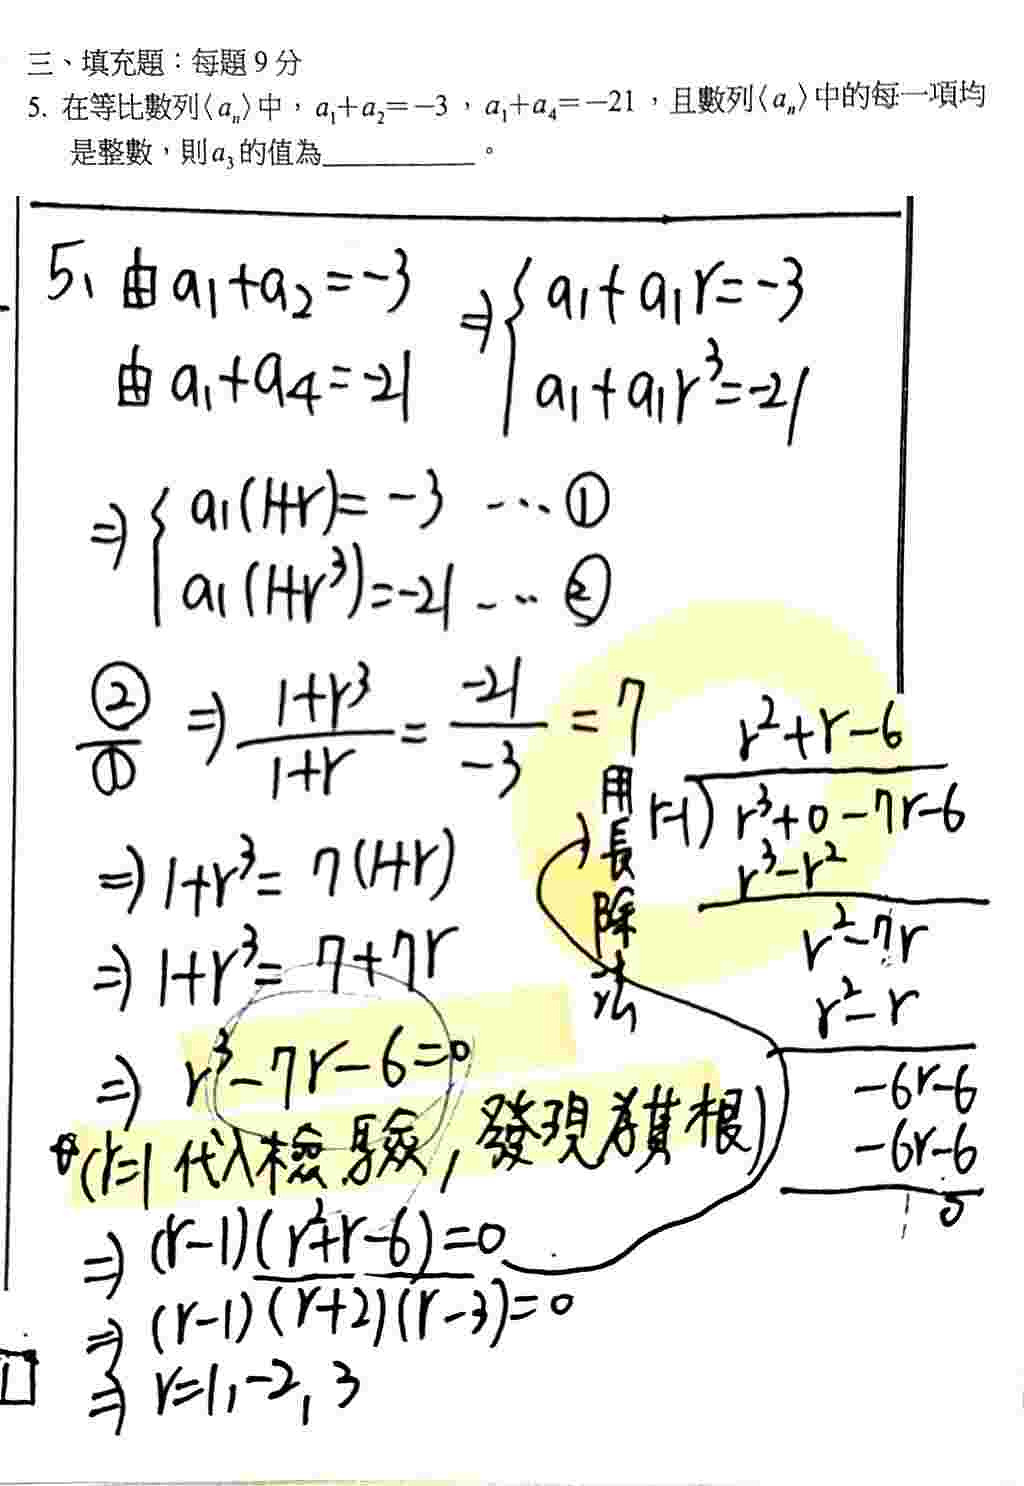 三、填充題：每題9分
5. 在等比數列⟨aₙ⟩中，a₁+a₂=−3，a₁+a₄=−21，且數列⟨aₙ⟩中的每一項均
是整數，則a₃的值為________。
5、由 a₁+a₂=-3 ⇒ { a₁+a₁r=-3
由 a₁+a₄=-21 a₁+a₁r³=-21
⇒ { a₁(1+r)=-3 ... ①
a₁(1+r³)=-21 ... ②
②/① ⇒ (1+r³)/(1+r) = -21/-3 = 7
⇒ 1+r³=7(1+r)
⇒ 1+r³=7+7r
⇒ r³-7r-6=0
(r=1 代入檢驗，發現為其根)
⇒ (r-1)(r²+r-6)=0
⇒ (r-1)(r+2)(r-3)=0
⇒ r=1,-2,3
⇒ 用長除法
r²+r-6
r-1)r³+0-7r-6
r³-r²
r²-7r
r²-r
-6r-6
-6r-6
0